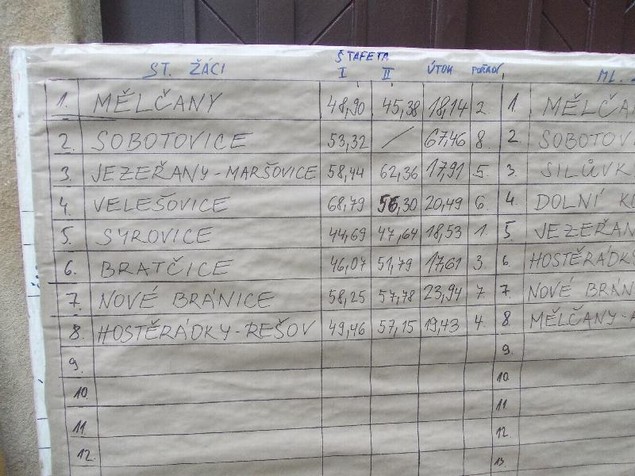 ŠTAFETA
ST. ŽÁCI I II ÚTOK POŘAD. ML.
1. MĚLČANY 48,90 45,38 18,14 2 1 MĚLČA
2. SOBOTOVICE 53,32 / 67,46 8 2 SOBOTOVI
3. JEZEŘANY-MARŠOVICE 58,44 62,36 17,91 5 3. SILŮVK
4. VELEŠOVICE 68,79 56,30 20,49 6 4 DOLNÍ K
5. SYROVICE 44,69 47,64 18,53 1 5 JEZEŘAN
6. BRATČICE 46,07 51,79 17,61 3 6 HOSTĚRÁDK
7. NOVÉ BRÁNICE 58,25 57,78 23,94 7 7. NOVÉ BRÁN
8. HOSTĚRÁDKY-REŠOV 49,46 57,15 19,43 4 8. MĚLČANY-
9. 9
10. 10
11 11
12. 12
13